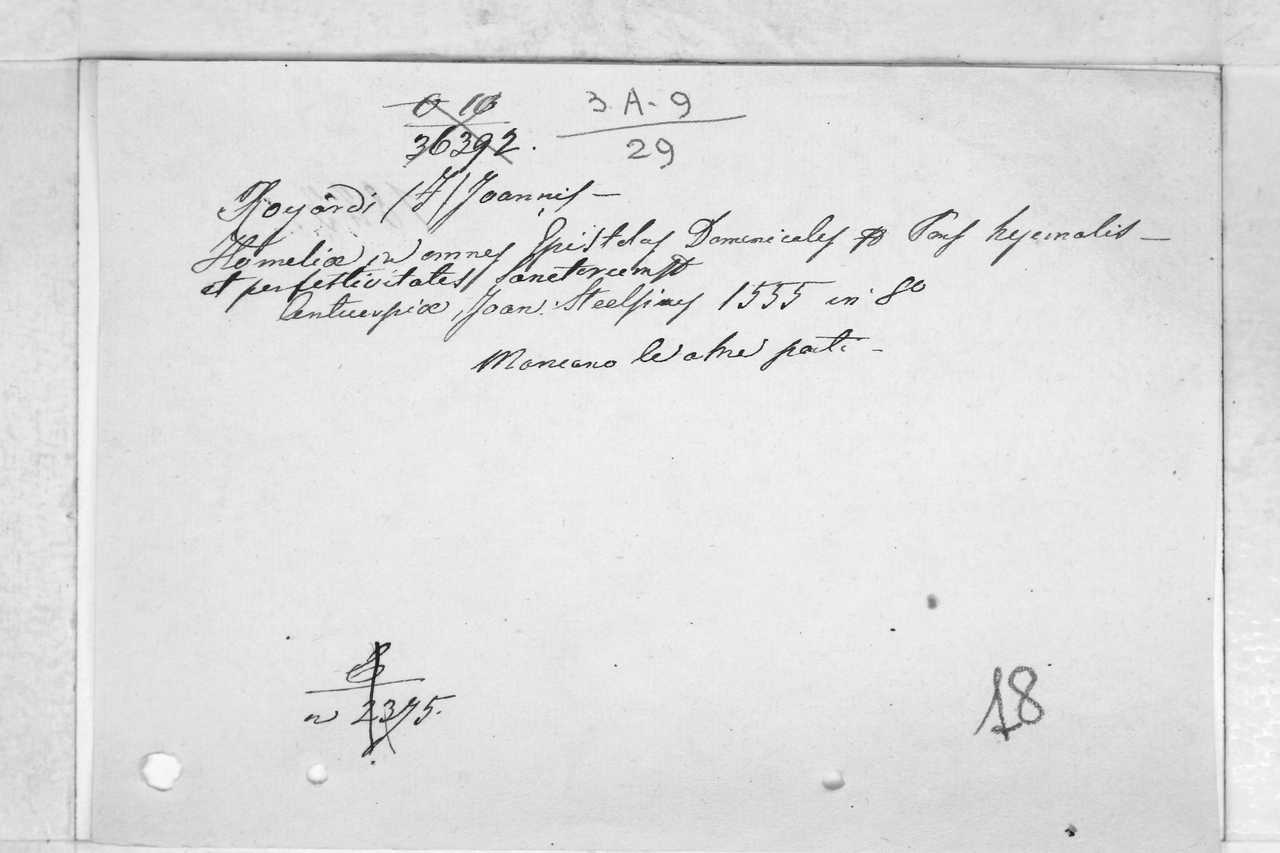 3 A - 9
36392.
29
Royardi (F) Joannis —
Homeliæ in omnes Epistolas Domenicales Pars hyemalis —
et per festivitates sanctorum
Antuerpiæ, Joan. Steelsius 1555 in 8º
Mancano le altre parti —
n 2375.
18